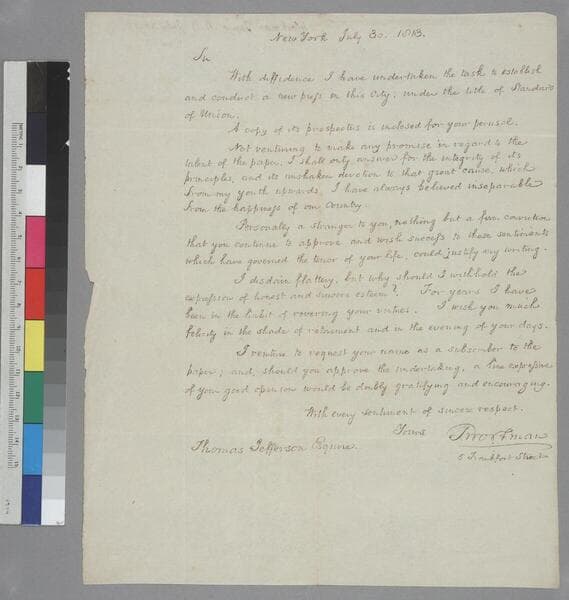 New York July 30. 1813.
Sir
With diffidence I have undertaken the task to establish
and conduct a new press in this City, under the title of Standard
of Union.
A copy of its prospectus is inclosed for your perusal.
Not venturing to make any promise in regard to the
talent of the paper, I shall only answer for the integrity of its
principles, and its unshaken devotion to that great cause, which
from my youth upwards, I have always believed inseparable
from the happiness of our Country.
Personally a stranger to you, nothing but a firm conviction
that you continue to approve and wish success to those sentiments
which have governed the tenor of your life, could justify my writing.
I disdain flattery, but why should I withhold the
expression of honest and sincere esteem? For years I have
been in the habit of revering your virtues. I wish you much
felicity in the shade of retirement and in the evening of your days.
I venture to request your name as a subscriber to the
paper; and, should you approve the undertaking, a line expressive
of your good opinion would be doubly gratifying and encouraging.
With every sentiment of sincere respect.
Yours TWortman
Thomas Jefferson Esquire.
5 Frankfort Street